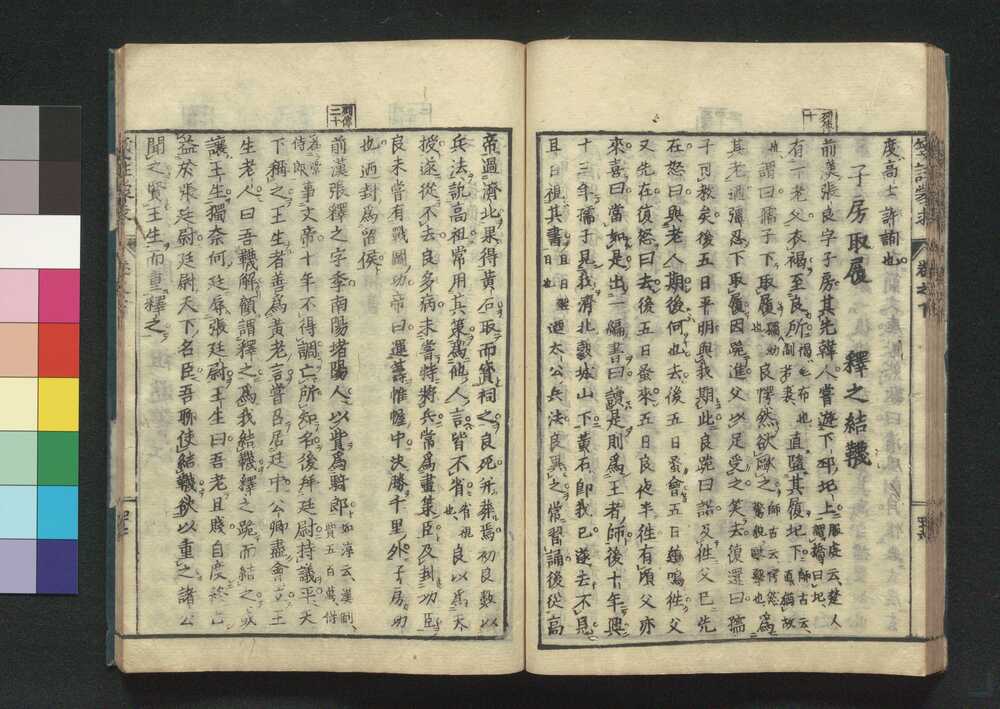 度高士許詢也
子房取履　釋之結韈
前漢張良字子房其先韓人嘗遊下邳圯上服虔云楚人謂橋曰圯
有一老父衣褐至良所褐毛布也制若裘直墮其履圯下師古云直猶故
也謂曰孺子下取履良愕然欲歐之為
其老迺彊忍下取履因跪進父以足受之笑去復還曰孺
子可教矣後五日平明與我期此良跪曰諾及往父已先
在怒曰與老人期後何也去後五日蚤會五日鷄鳴往父
又先在復怒曰去後五日蚤來五日良夜半往有頃父亦
來喜曰當如是出一編書曰讀是則為王者師後十年興
十三年孺子見我濟北穀城山下黃石即我已遂去不見
旦日視其書迺太公兵法良異之常習誦後從高
帝過濟北果得黃石取而寶祠之良死并葬焉初良數以
兵法說高祖常用其策為他人言皆不省省視也良以為天
授遂從不去良多病未嘗特將兵常為畫策臣及封功臣
良未嘗有戰鬭功帝曰運籌帷幄中決勝千里外子房功
也迺封為留侯
前漢張釋之字季南陽堵陽人以貲為騎郎如淳云漢制貲五百萬得
為常侍郎事文帝十年不得調亡所知名後拜廷尉持議平天
下稱之王生者善為黃老言嘗召居廷中公卿盡會立王
生老人曰吾韈解顧謂釋之為我結韈釋之跪而結之或
讓王生獨奈何廷辱張廷尉王生曰吾老且賤自度終亡
益於張廷尉廷尉天下名臣吾聊使結韈欲以重之諸公
聞之賢王生而重釋之